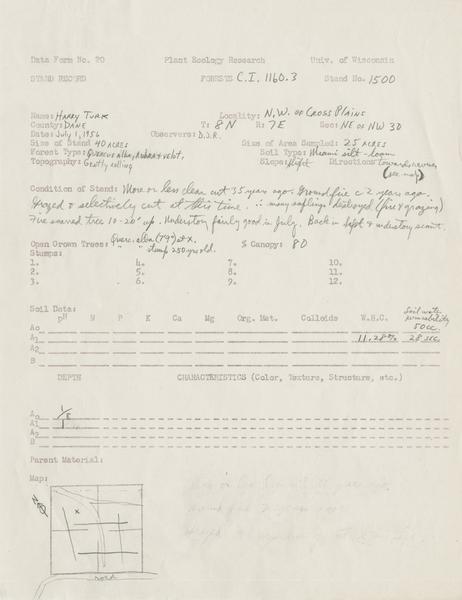 Data Form No. 20 Plant Ecology Research Univ. of Wisconsin
STAND RECORD FORESTS C.I. 1160.3 Stand No. 1500
Name: HARRY TURK Locality: N.W. OF CROSS PLAINS
County: DANE T: 8N R: 7E Sec: NE OF NW 30
Date: July 1, 1956 Observers: D.J.R.
Size of Stand 40 ACRES Size of Area Sampled: 25 ACRES
Forest Type: Quercus alba, rubra & velut. Soil Type: Miami silt-loam
Topography: Gently rolling Slope: slight Direction: towards
(see map)
Condition of Stand: More or less clean cut 35 years ago. Ground fire c 2 years ago.
Grazed & selectively cut at this time. ∴ many saplings destroyed (fire & grazing)
Fire scarred trees 10-20" up. Understory fairly good in July. Back in Sept & understory scant.
Open Grown Trees: Querc. alba (79") at X. % Canopy: 80
Stumps: " " stump 250 yrs old.
1. 4. 7. 10.
2. 5. 8. 11.
3. 6. 9. 12.
Soil Data:
pH N P K Ca Mg Org. Mat. Colloids W.H.C. Soil water permeability
50cc.
Ao
A1 11.28% 28 sec.
A2
B
DEPTH CHARACTERISTICS (Color, Texture, Structure, etc.)
Ao
A1
A2
B
Parent Material:
Map:
N
X
ROAD